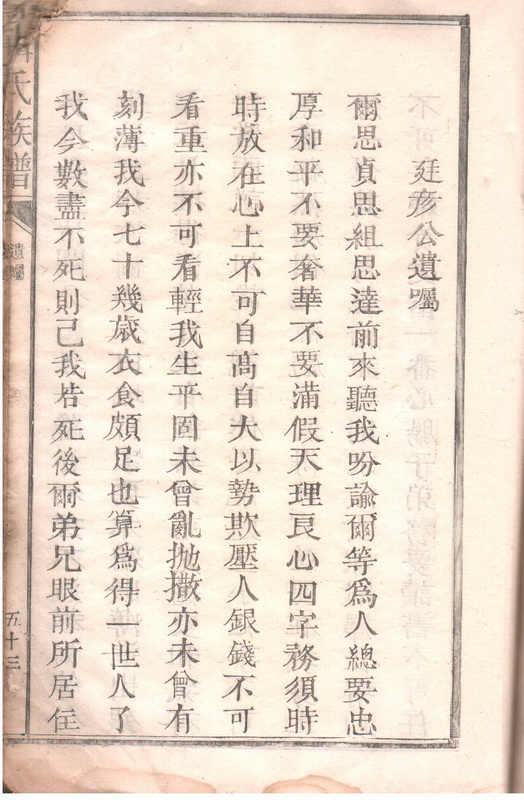 廷彥公遺囑
爾思貞思組思達前來聽我吩諭爾等爲人總要忠
厚和平不要奢華不要滿假天理良心四字務須時
時放在心上不可自髙自大以勢欺壓人銀錢不可
看重亦不可看輕我生平固未曾亂抛撒亦未曾有
刻薄我今七十幾歲衣食頗足也算爲得一世人了
我今數盡不死則已我若死後爾弟兄眼前所居住
氏族譜
遺囑
五十三